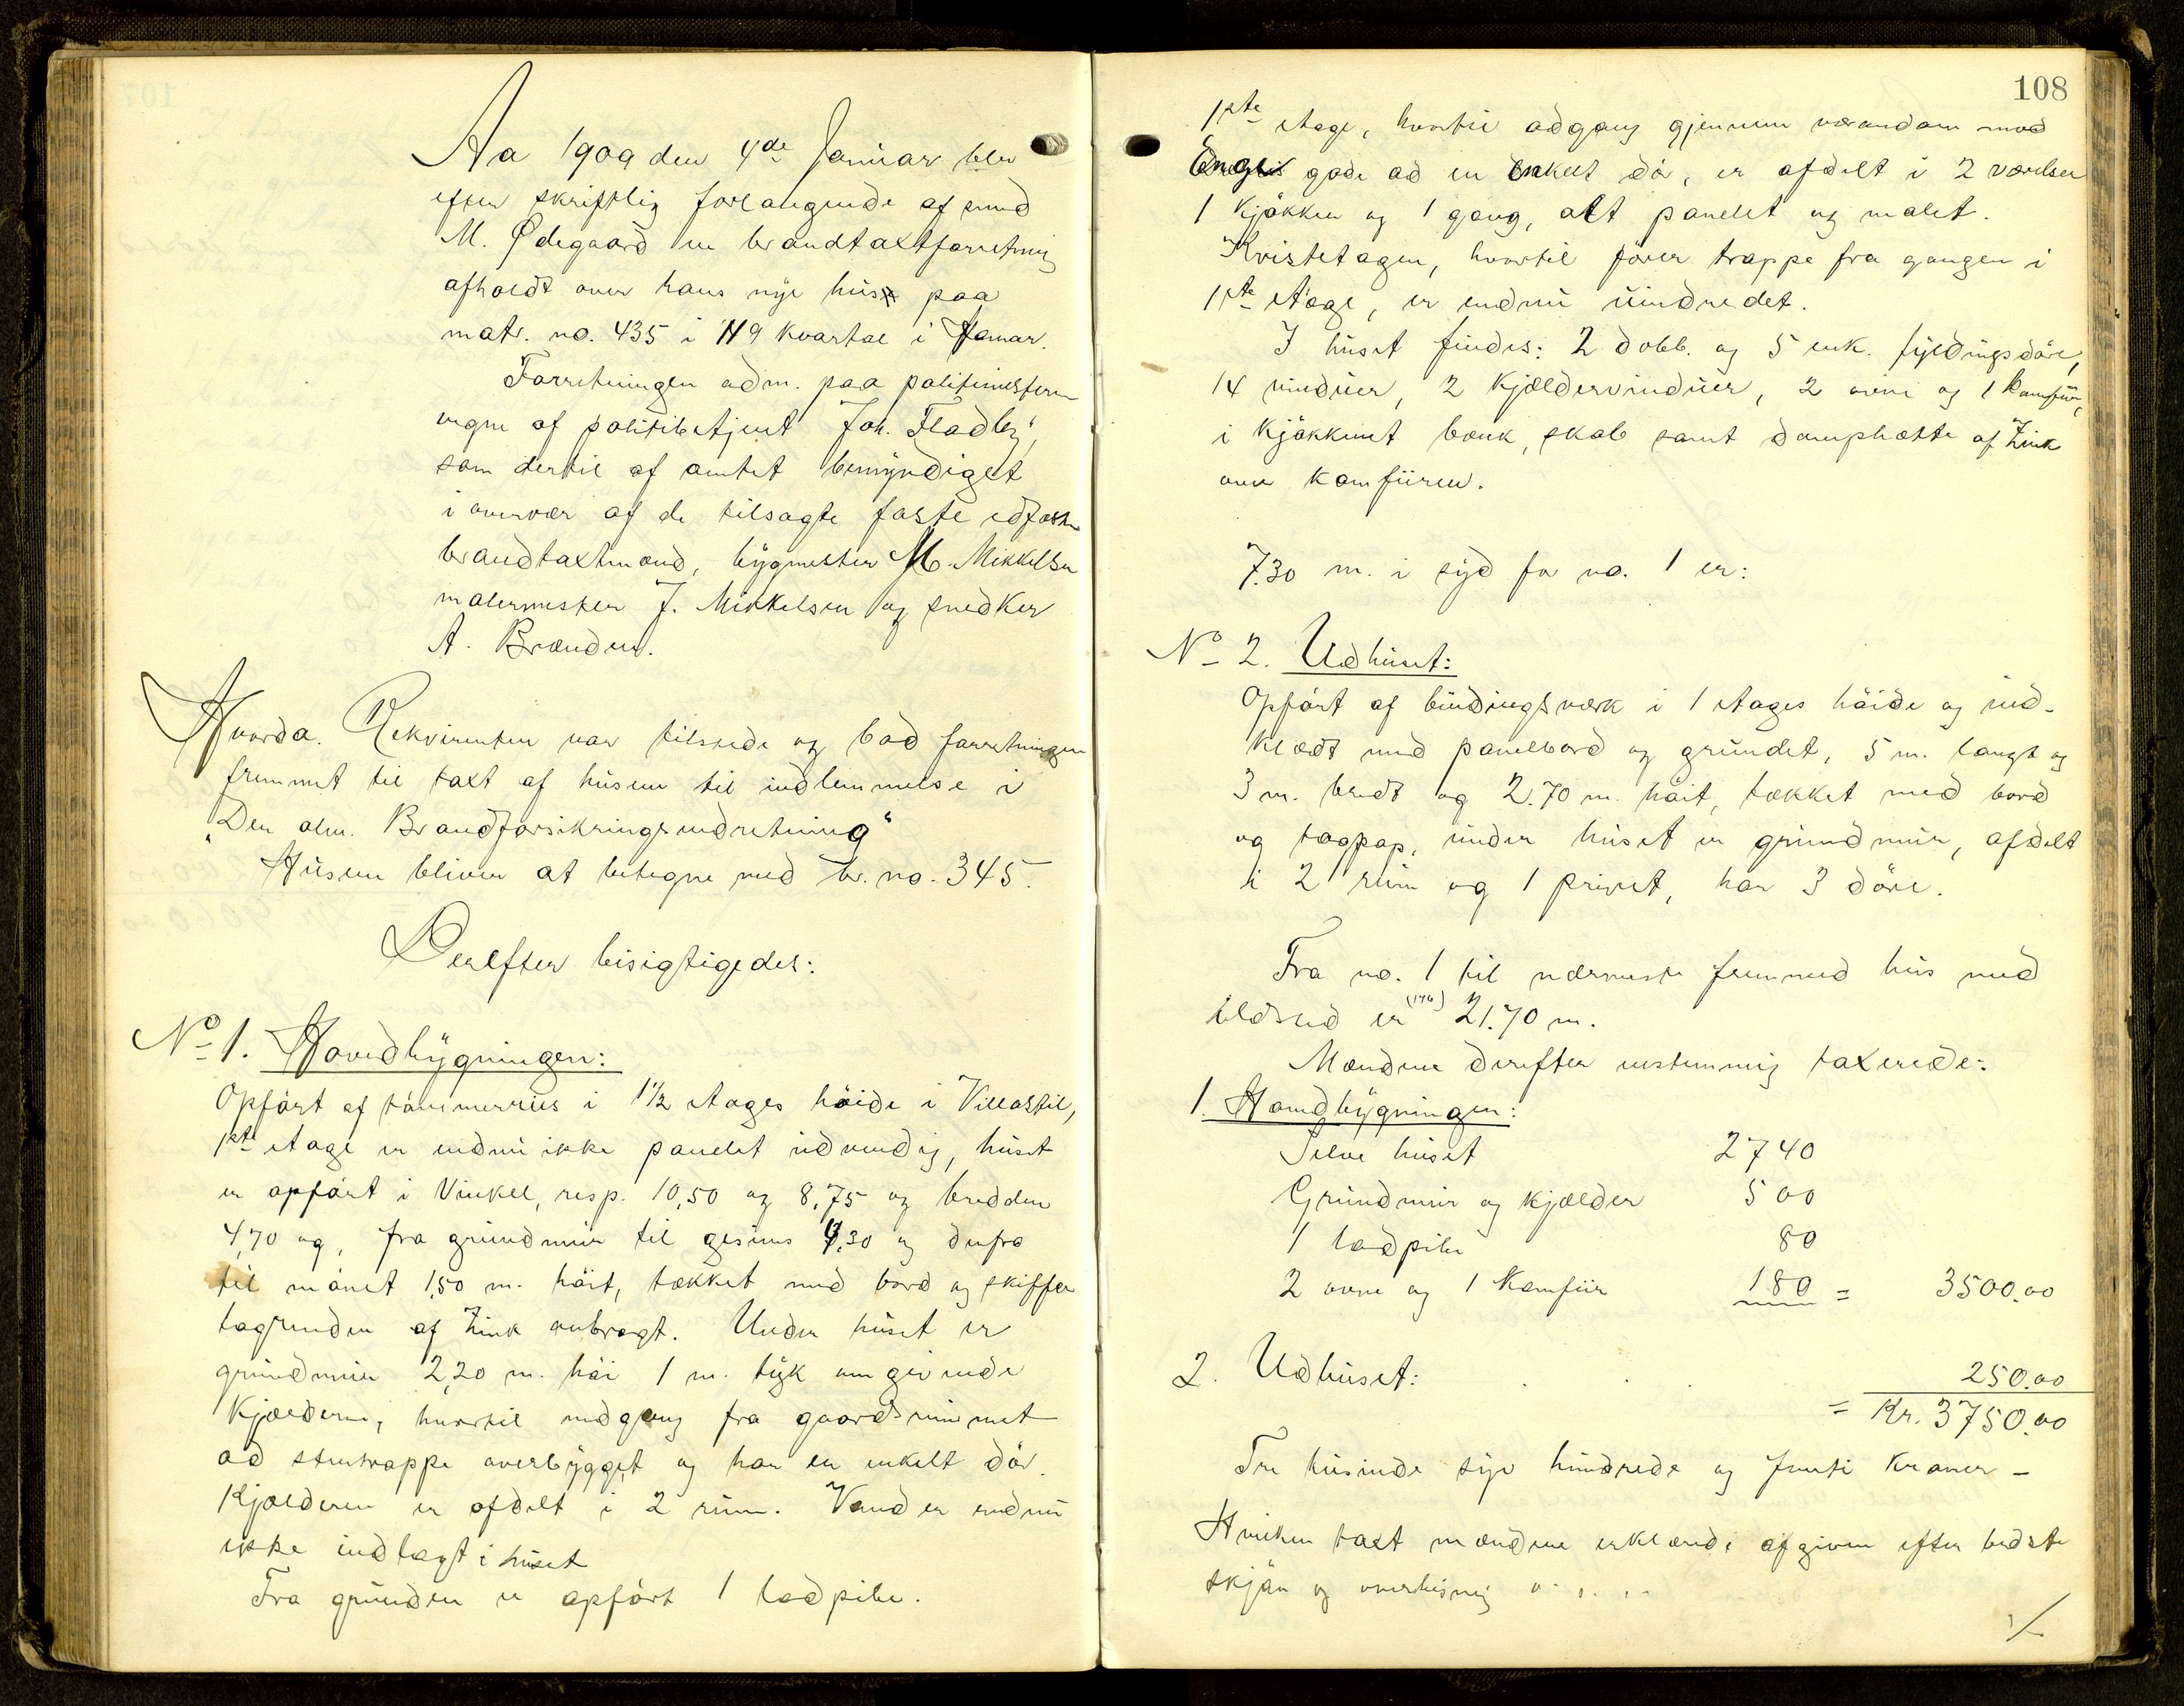 Aa 1909 den 4de Januar blev
efter skriftlig forlangende af smed
M. Ødegaard en brandtaxtforretning
afholdt over hans nye hus paa
matr. no. 435 i 119 kvartal i Hamar.
Forretningen adm. paa politimesterens
vegne af politibetjent Joh. Fladby,
som dertil af amtet bemyndiget
i overvær af de tilsagte faste edfæstede
brandtaxtmænd, bygmester M. Mikkelsen
malermester J. Mikkelsen og snedker
A. Brænden.
Hvorda. Rekvirenten var tilstede og bad forretningen
fremmet til taxt af husene til indlemmelse i
"Den alm. Brandforsikringsindretning"
Husene bliver at betegne med br. no. 345.
Derefter besigtigedes:
No 1. Hovedbygningen:
Opført af tømmerhus i 1 1/2 etages høide i Villastil,
1ste etage er endnu ikke panelet udvendig, huset
er opført i Vinkel, resp. 10,50 og 8,75 og bredden
4,70 og, fra grundmur til gesims 4,30 og derfra
til mønet 1,50 m. høit, tækket med bord og skiffer
tagrender af Zink anbragt. Under huset er
grundmur 2,20 m. høi 1 m. tyk omgivende
Kjælderen, hvortil nedgang fra gaardsrummet
ad stentrappe overbygget og har en enkelt dør.
Kjælderen er afdelt i 2 rum. Vand er endnu
ikke indlagt i huset
Fra grunden er opført 1 ladpibe.
108
1ste etage, hvortil adgang gjennem verandaen mod
Enges gade ad en enkelt dør, er afdelt i 2 værelser
1 kjøkken og 1 gang, alt panelet og malet.
Kvistetagen, hvortil fører trappe fra gangen i
1ste etage, er endnu uindredet.
I huset findes: 2 dobb. og 5 enk. fyldingsdøre,
14 vinduer, 2 kjældervinduer, 2 ovne og 1 komfur,
i kjøkkenet bænk, skab samt damphætte af Zink
over komfuren.
7.30 m. i syd for no. 1 er:
No 2. Udhuset:
Opført af bindingsværk i 1 etages høide og ud-
klædt med panelbord og grundet, 5 m. langt og
3 m. bredt og 2.70 m. høit, tækket med bord
og tagpap, under huset er grundmur, afdelt
i 2 rum og 1 privet, har 3 døre.
Fra no. 1 til nærmeste fremmed hus med
ildsted er (176) 21.70 m.
Mændene derefter enstemmig taxerede:
1. Hovedbygningen:
Selve huset 2740
Grundmur og kjælder 500
1 ladpibe 80
2 ovne og 1 Komfur 180 = 3500.00
2. Udhuset: 250.00
= Kr. 3750.00
Tre tusinde syv hundrede og femti Kroner -
Hvilken taxt mændene erklærede afgiven efter bedste
skjøn og overbevisning